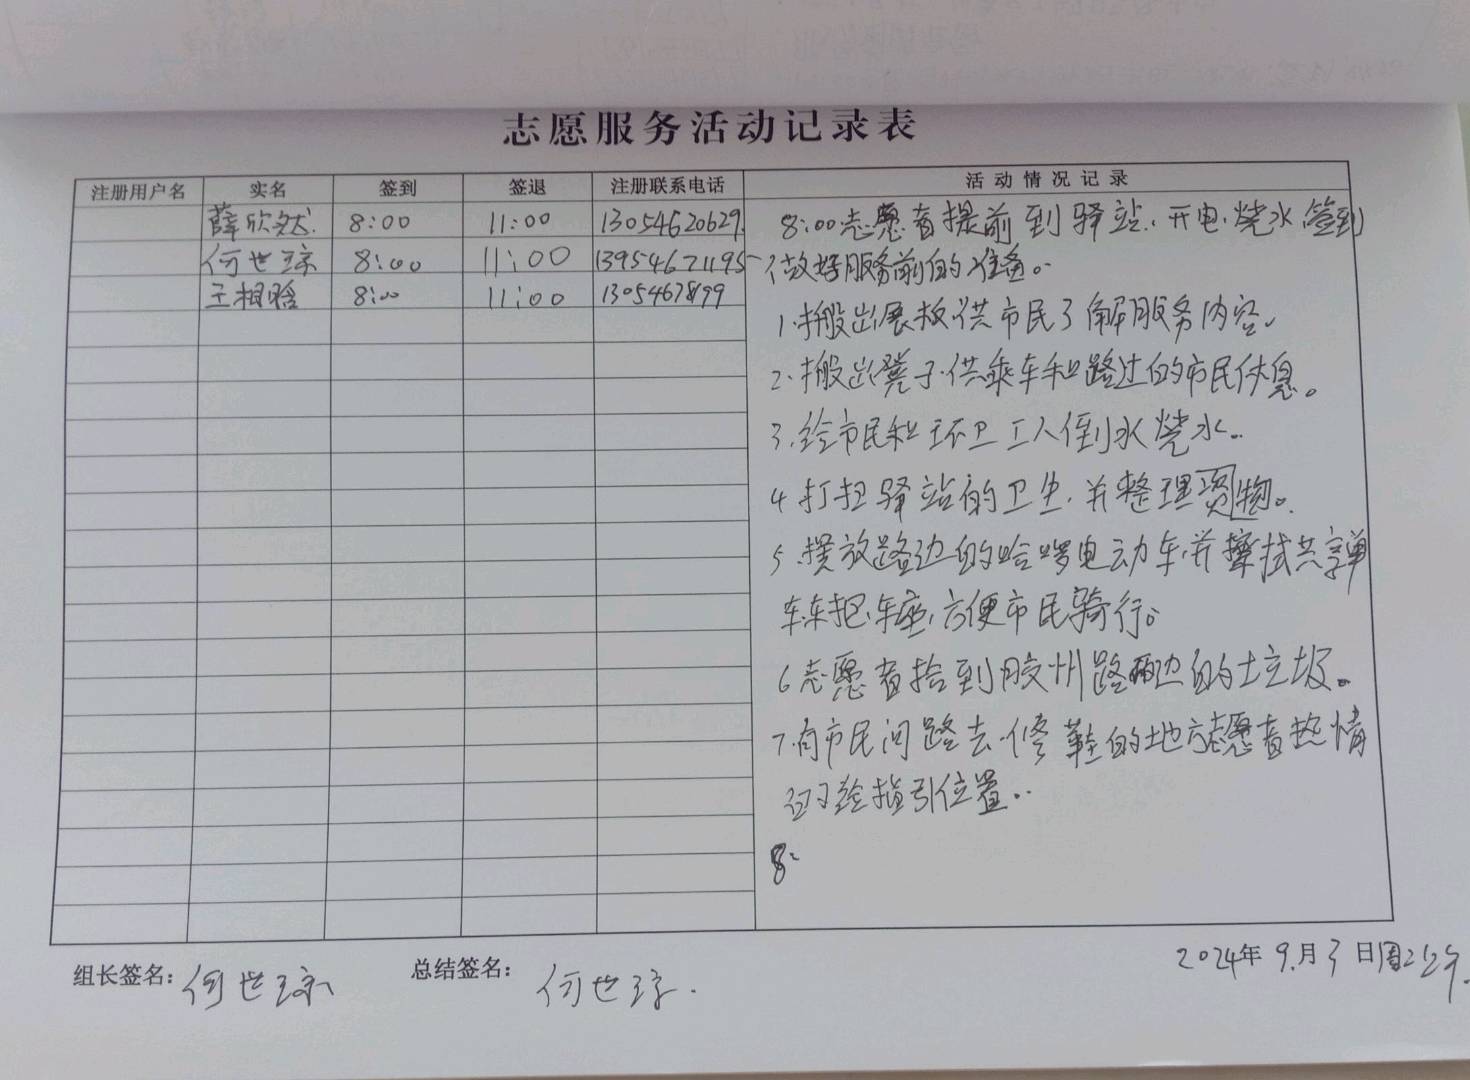 志愿服务活动记录表
注册用户名 实名 签到 签退 注册联系电话 活动情况记录
薛欣然. 8:00 11:00 13054620629.
何世琼 8:00 11:00 13954671195
王相晗 8:00 11:00 13054678199
8:00志愿者提前到驿站.开电.烧水 签到
做好服务前的准备。
1.搬出展板供市民了解服务内容。
2.搬出凳子.供乘车和路过的市民休息。
3.给市民和环卫工人倒水烧水..
4 打扫驿站的卫生.并整理货物。
5.摆放路边的哈啰电动车,并擦拭共享单
车车把.车座,方便市民骑行。
6志愿者捡到胶州路两边的垃圾。
7.有市民问路去.修鞋的地方志愿者热情
的给指引位置..
8:
组长签名: 何世琼 总结签名: 何世琼.
2024年 9.月3日周2上午.